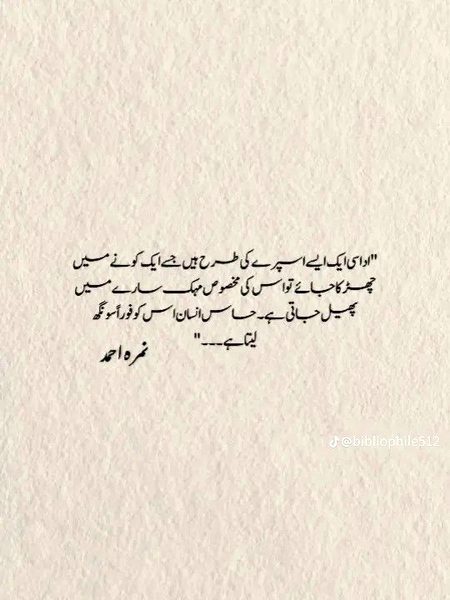 "اداسی ایک ایسے اسپرے کی طرح ہیں جسے ایک کونے میں
چھڑکا جائے تو اس کی مخصوص مہک سارے میں
پھیل جاتی ہے۔ حساس انسان اس کو فوراً سونگھ
لیتا ہے۔۔۔"
نمرہ احمد
@bibliophile512